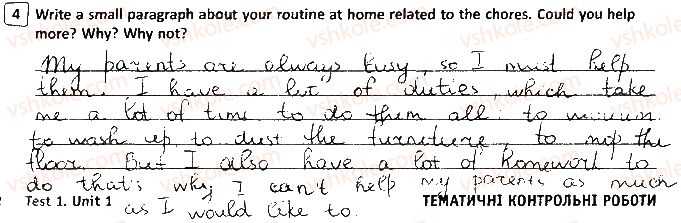 4 Write a small paragraph about your routine at home related to the chores. Could you help
more? Why? Why not?
My parents are always busy, so I must help
them. I have a lot of duties, which take
me a lot of time to do them all: to
to wash up to dust the furneture, to mop the
floor. But I also have a lot of homework to
do that's why I can't help my parents as much
Test 1. Unit 1 as I would like to. ТЕМАТИЧНІ КОНТРОЛЬНІ РОБОТИ